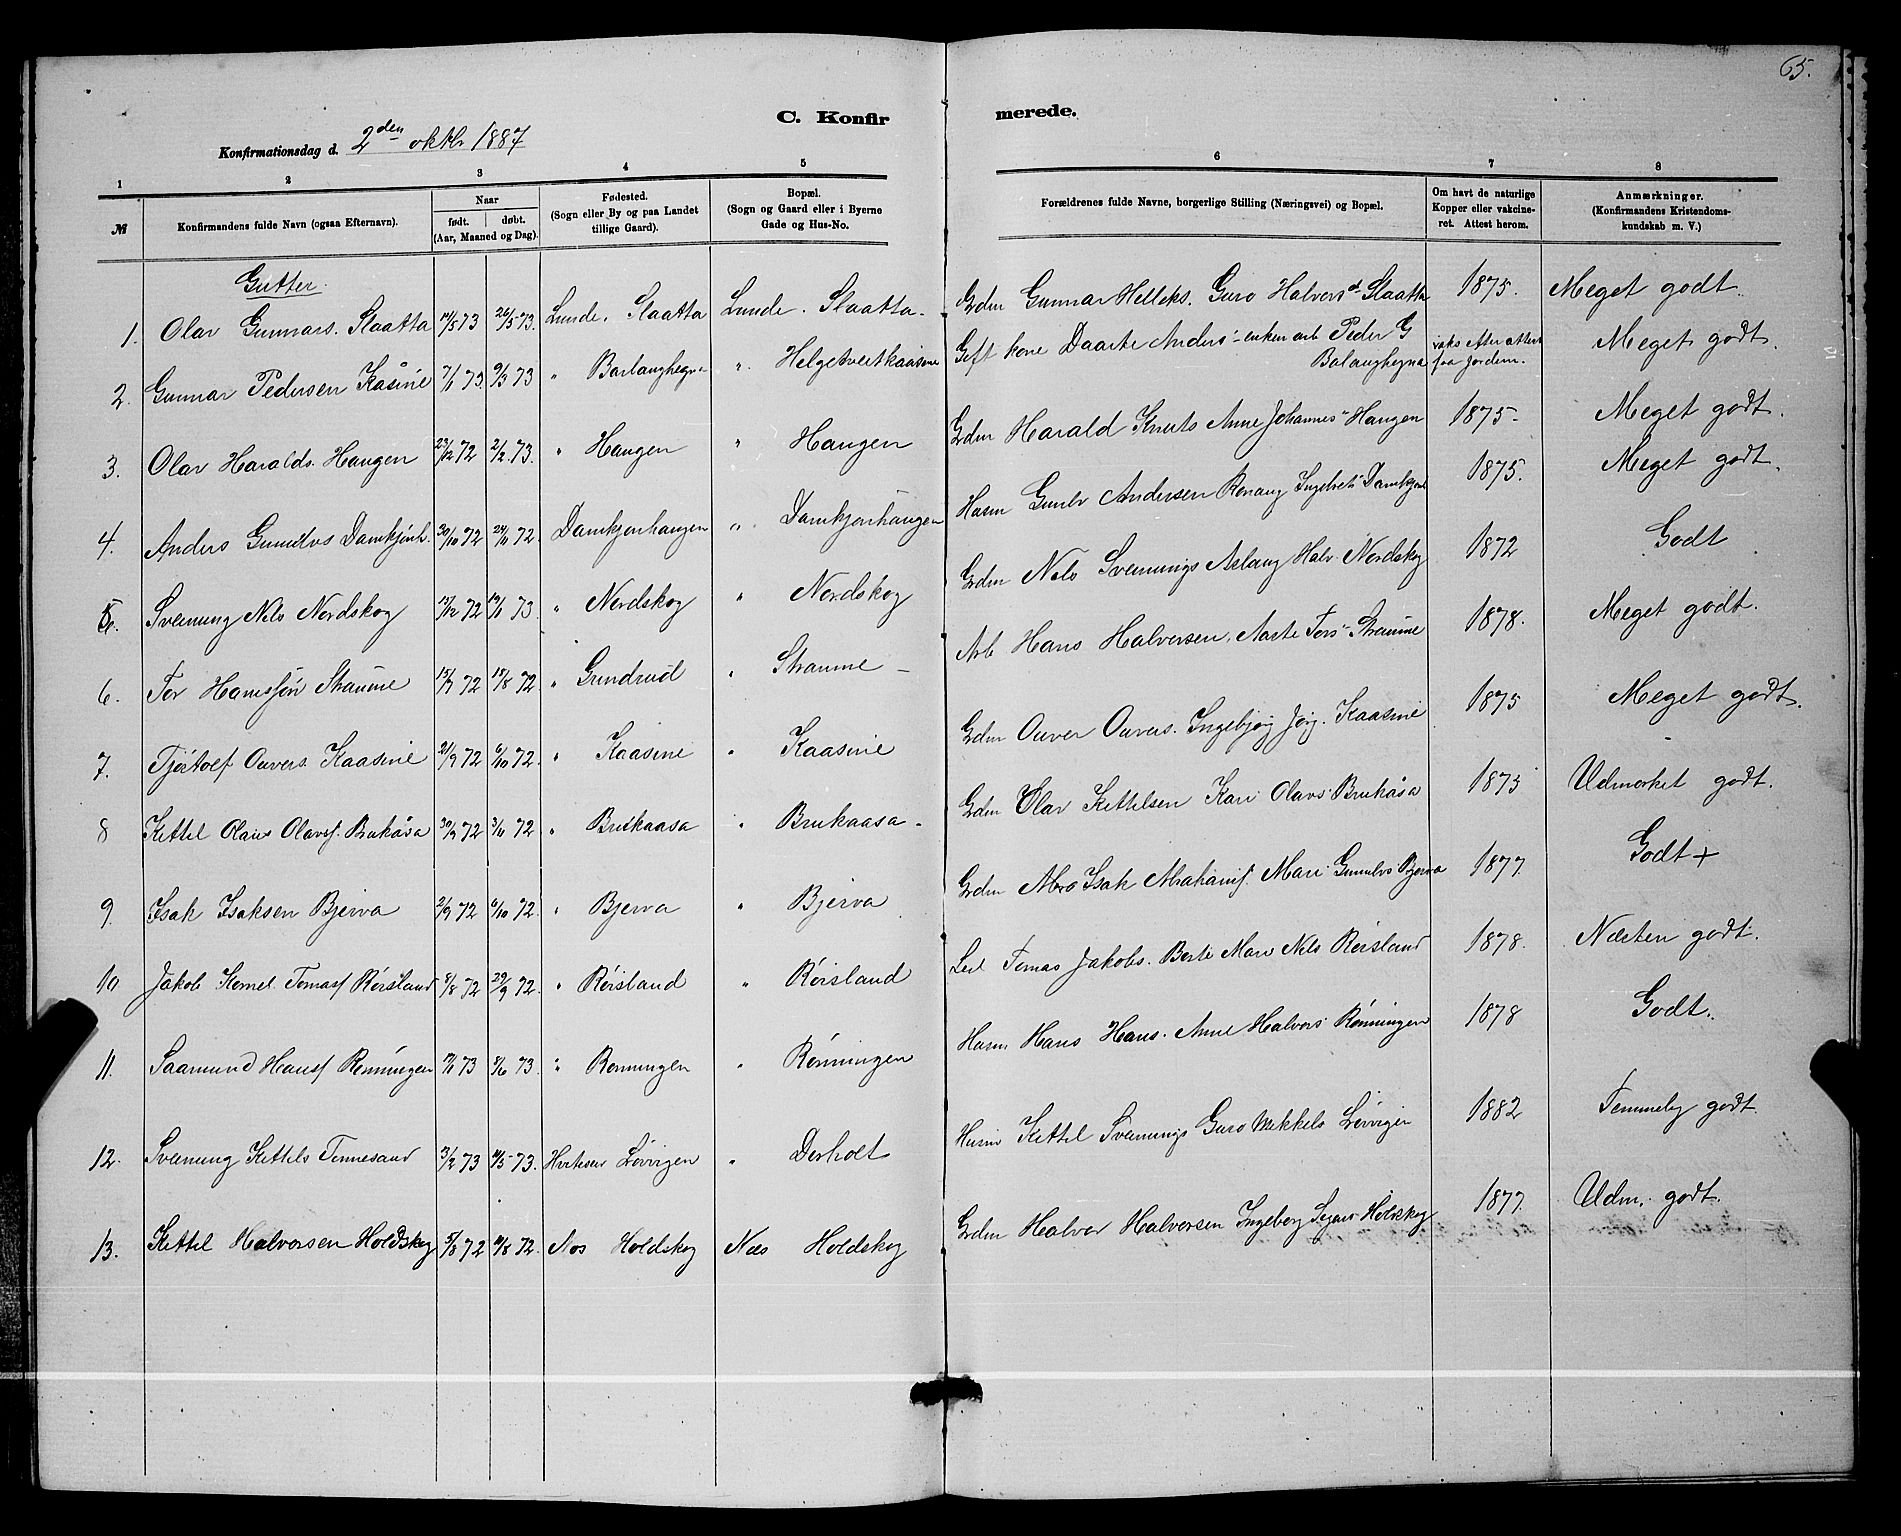 65.
C. Konfir merede.
Konfirmationsdag d. 2den oktbr 1887
1 2 3 4 5 6 7 8
№ Konfirmandens fulde Navn (ogsaa Efternavn). Naar født. døbt. (Aar, Maaned og Dag). Fødested. (Sogn eller By og paa Landet tillige Gaard). Bopæl. (Sogn og Gaard eller i Byerne Gade og Hus-No. Forældrenes fulde Navne, borgerlige Stilling (Næringsvei) og Bopæl. Om havt de naturlige Kopper eller vakcineret. Attest herom. Anmærkninger. (Konfirmandens Kristendomskundskab m. V.)
Gutter.
1. Olav Gunnars. Slaatta 14/5 73 26/5 73. Lunde. Slaatta Lunde. Slaatta. Grdm Gunnar Helleks. Guro Halversd Slaatta 1875. Meget godt.
2. Gunnar Pedersen Kasine 7/1 73. 9/3 73 " Barlaughegna " Helgetveitkaasine Gift kone Daarte Anders enkem arb Peder G Balaughegna vaks efter attest fra Jordem. Meget godt.
3. Olav Haralds. Haugen 23/12 72 2/2 73. " Haugen " Haugen Grdm Harald Knuts Anne Johannes Haugen 1875 Meget godt.
4. Anders Gunulvs Damkjønh. 30/10 72 24/11 72. Damkjonhaugen " Damkjonhaugen Husm Gunlv Andersen Ronaug Ingebrets Damkjonh 1875. Meget godt.
5. Sveinung Nils Nordskog 15/12 72 19/1 73. " Nordskog " Nordskog Grdm Nils Sveinungs Aslaug Halv. Nordskog 1872 Godt
6. Tor Hanssøn Straume 15/7 72 18/8 72. " Gundrud " Straume Arb Hans Halversen, Aaste Tors Straume 1878. Meget godt.
7. Tjøstolf Ouvers. Kaasine 21/9 72 6/10 72. " Kaasine " Kaasine Grdm Ouver Ouvers. Ingebjøg Jørg. Kaasine 1875 Meget godt.
8 Kittil Olaus Olavs. Brukåsa 30/9 72 3/11 72 " Brukaasa " Brukaasa Grdm Olav Kittilsen Kari Olavs Brukåsa 1875 Udmerket godt.
9. Isak Isaksen Bjerva 2/9 72 6/10 72. " Bjerva " Bjerva Grdm Isak Abrahams. Mari Gunulvs Bjerva 1877. Godt +
10 Jakob Kornel. Tomass Røisland 8/8 72 29/9 72. " Røisland " Røisland Lei Tomas Jakobs. Berte Mari Nils Røisland 1878. Næsten godt.
11. Saamund Hanss Rønningen 7/1 73 8/6 73. " Rønningen " Rønningen Husm Hans Hans. Anne Halvors Rønningen 1878 Godt.
12. Sveinung Kittils Tinnesand 3/2 73 11/5 73. Hvitseid Løvvigen " Derholt Husm Kittil Sveinungs Guro Mikkels Løvvigen 1882 Temmelig godt
13. Kittil Halvorsen Holdskog 5/8 72 11/8 72. Nes Holdskog Næs Holdskog Grdm Halvor Halvorsen Ingeborg Holdskog 1877. Udm. godt.